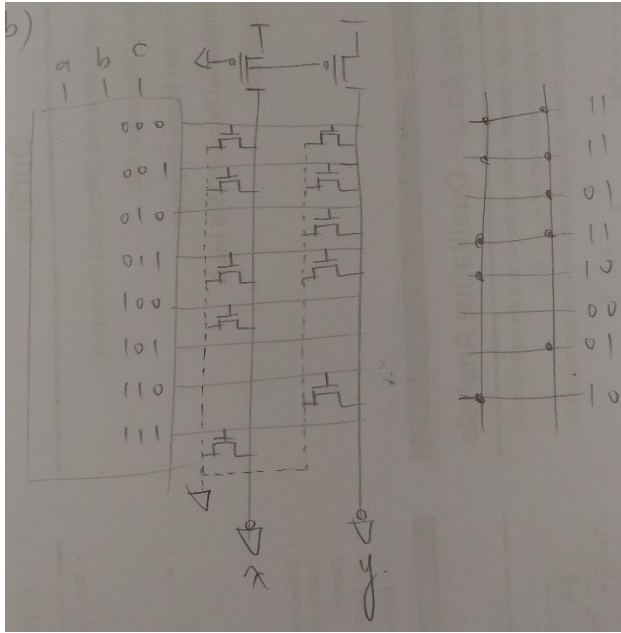 b)
a b c
000
001
010
011
100
101
110
111
x
y
11
11
01
11
10
00
01
10